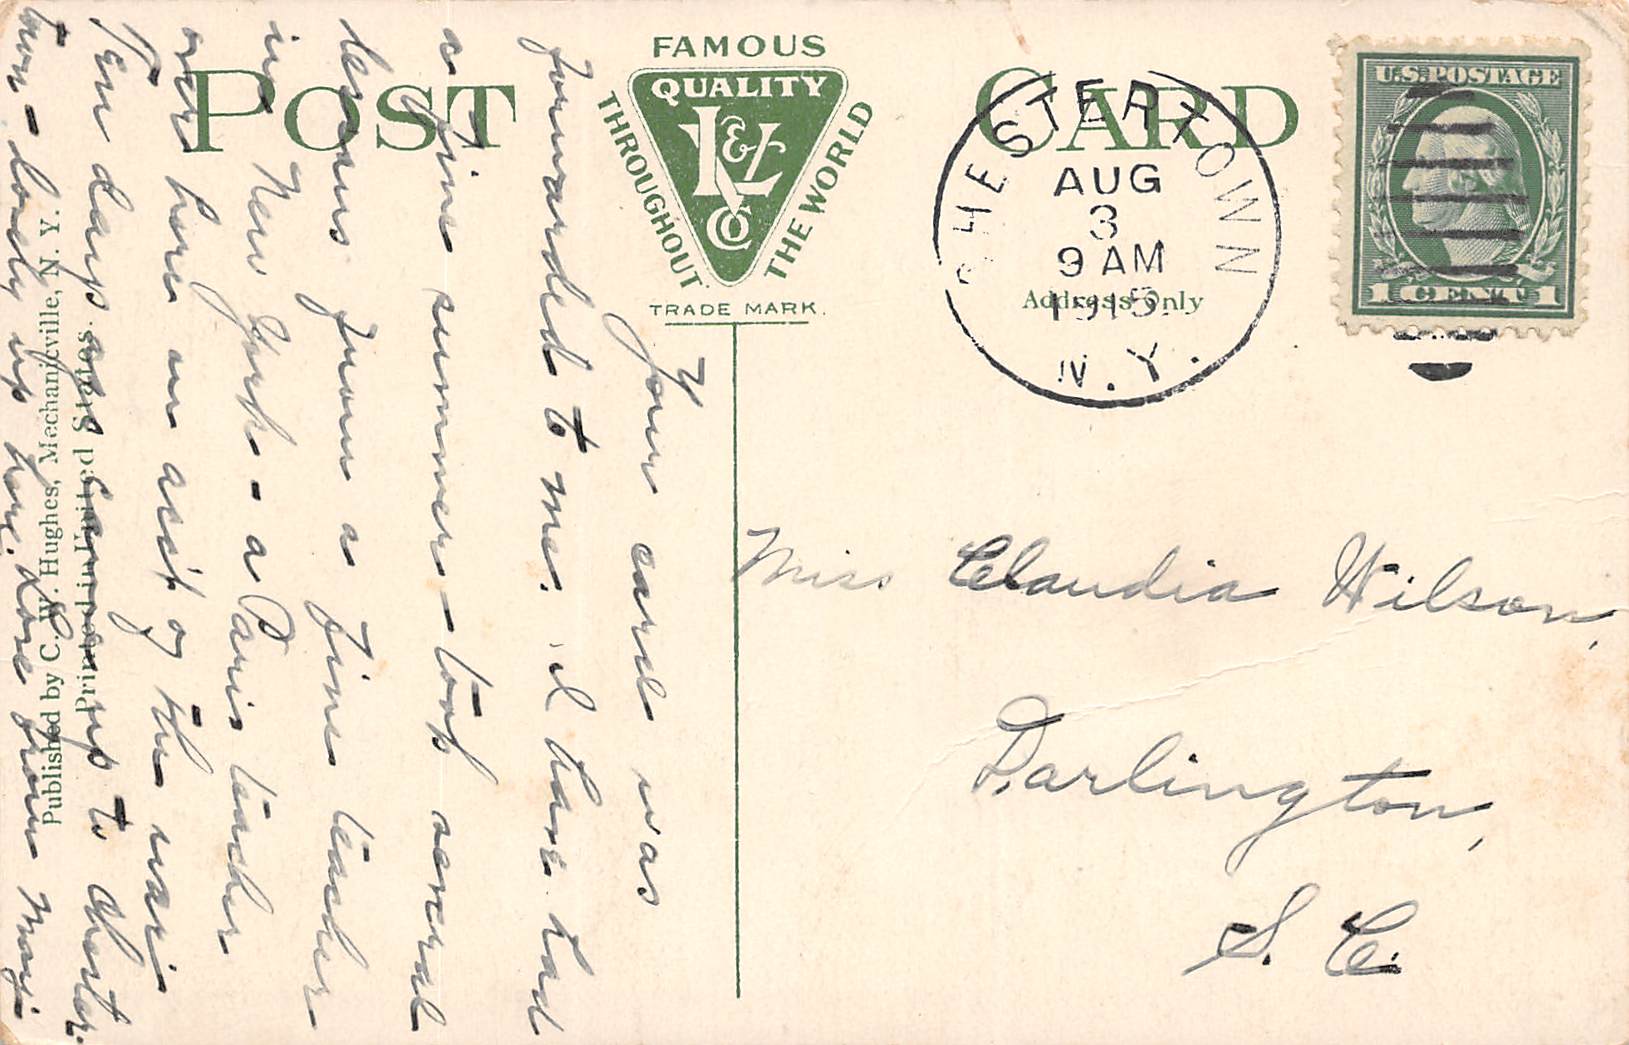 POST CARD
FAMOUS
QUALITY
L & Co
THROUGHOUT
THE WORLD
TRADE MARK.
CHESTERTOWN
AUG
3
9 AM
1915
N.Y.
Address Only
U.S. POSTAGE
1 CENT 1
Your card was
forwarded to me. I have had
a fine summer - took several
lessons from a fine teacher
in New York - a Paris teacher
over here on acc't of the war.
Ten days ago came up to Chester-
town - lovely up here. Love from
Miss Claudia Wilson,
Darlington,
S. C.
Published by C. W. Hughes, Mechanicville, N. Y.
Printed in United States.